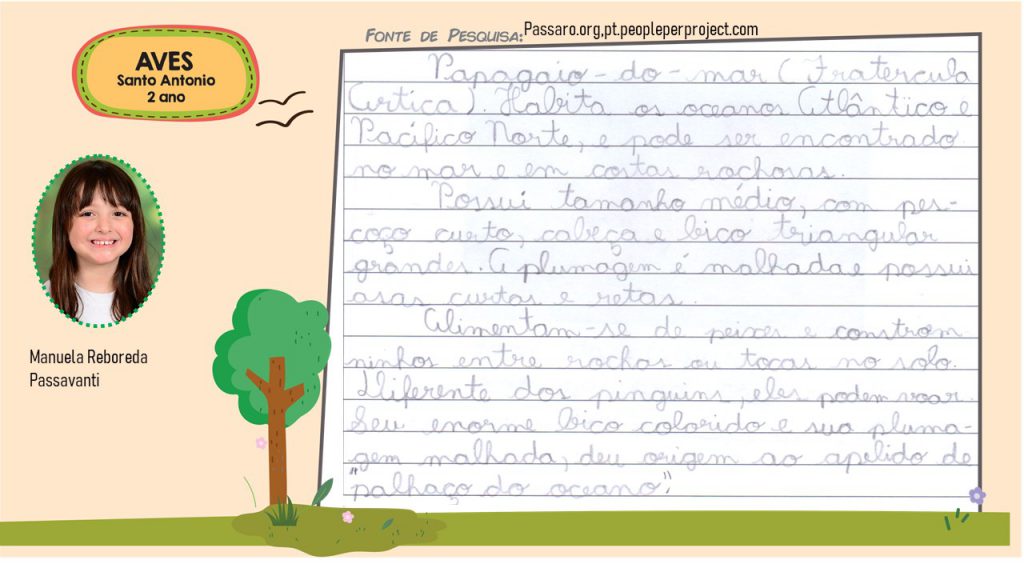 AVES
Santo Antonio
2 ano
FONTE DE PESQUISA: Passaro.org,pt.peopleperproject.com
Papagaio-do-mar (Fratercula
Artica). Habita os oceanos Atlântico e
Pacífico Norte, e pode ser encontrado
no mar e em costas rochosas.
Possui tamanho médio, com pes-
coço curto, cabeça e bico triangular
grandes. A plumagem é malhada e possui
asas curtas e retas.
Alimentam-se de peixes e constroem
ninhos entre rochas ou tocas no solo.
Diferente dos pinguins, eles podem voar.
Seu enorme bico colorido e sua pluma-
gem malhada, deu origem ao apelido de
"palhaço do oceano".
Manuela Reboreda
Passavanti